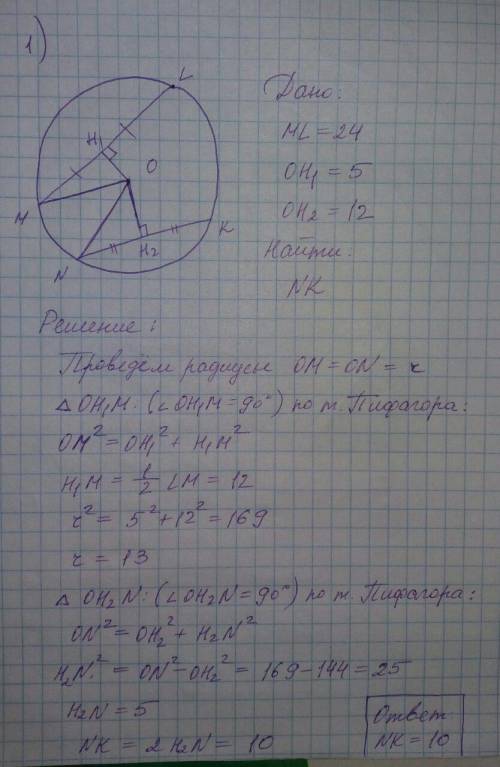 1)
L
H₁
O
M
N
H₂
K
Дано:
ML = 24
OH₁ = 5
OH₂ = 12
Найти:
NK
Решение:
Проведем радиусы OM = ON = r
△ OH₁M: (∠OH₁M = 90°) по т. Пифагора:
OM² = OH₁² + H₁M²
H₁M = 1/2 LM = 12
r² = 5² + 12² = 169
r = 13
△ OH₂N: (∠OH₂N = 90°) по т. Пифагора:
ON² = OH₂² + H₂N²
H₂N² = ON² - OH₂² = 169 - 144 = 25
H₂N = 5
NK = 2 H₂N = 10
Ответ
NK = 10